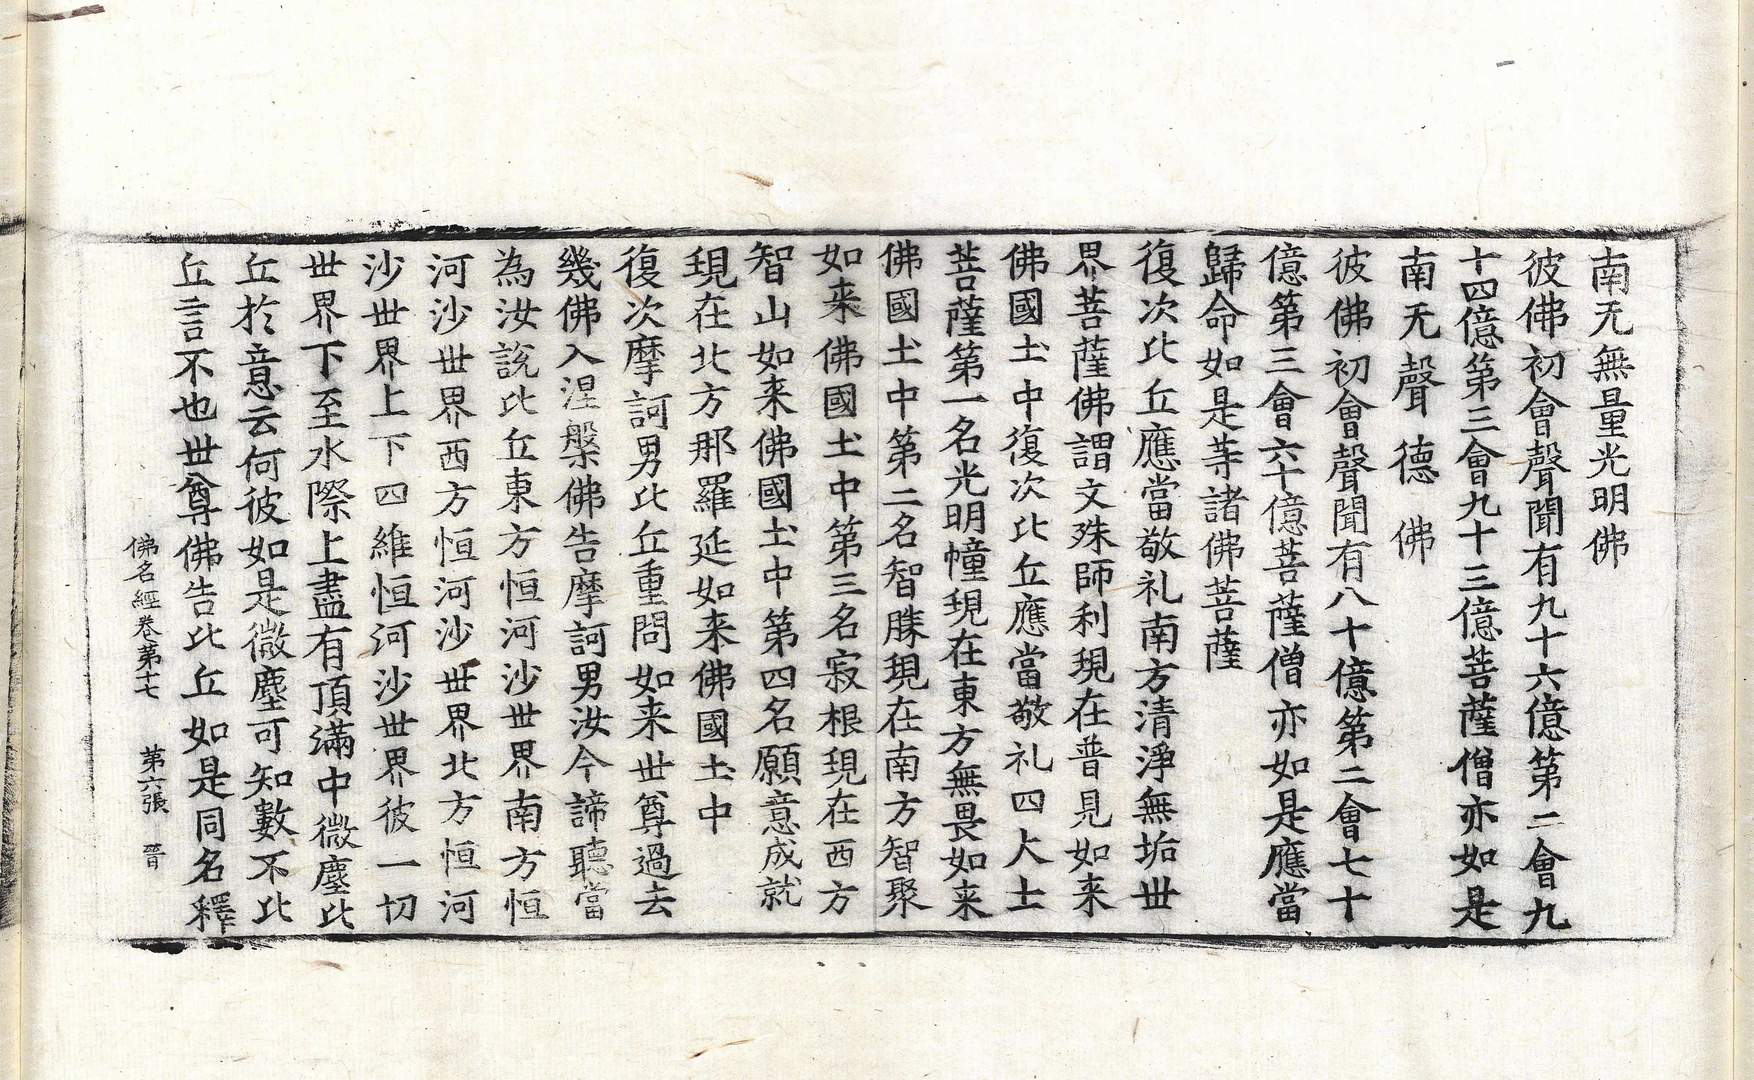 南无無量光明佛
彼佛初會聲聞有九十六億第二會九
十四億第三會九十三億菩薩僧亦如是
南无聲德佛
彼佛初會聲聞有八十億第二會七十
億第三會六十億菩薩僧亦如是應當
歸命如是等諸佛菩薩
復次比丘應當敬礼南方清淨無垢世
界菩薩佛謂文殊師利現在普見如来
佛國土中復次比丘應當敬礼四大士
菩薩第一名光明幢現在東方無畏如来
佛國土中第二名智勝現在南方智聚
如来佛國土中第三名寂根現在西方
智山如来佛國土中第四名願意成就
現在北方那羅延如来佛國土中
復次摩訶男比丘重問如来世尊過去
幾佛入涅槃佛告摩訶男汝今諦聽當
為汝說比丘東方恒河沙世界南方恒
河沙世界西方恒河沙世界北方恒河
沙世界上下四維恒河沙世界彼一切
世界下至水際上盡有頂滿中微塵比
丘於意云何彼如是微塵可知數不比
丘言不也世尊佛告比丘如是同名釋
佛名經卷第十七 第六張 晉